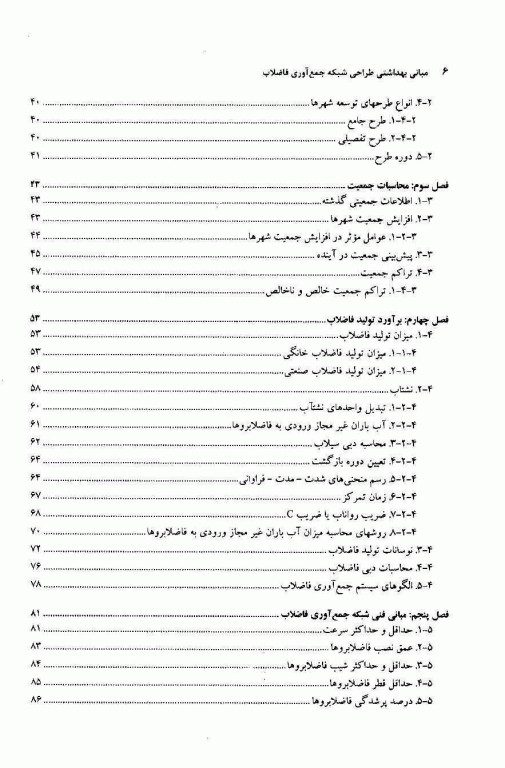 ۶ مبانی بهداشتی طراحی شبکه جمع‌آوری فاضلاب
۲-۴. انواع طرحهای توسعه شهرها ۴۰
۲-۴-۱. طرح جامع ۴۰
۲-۴-۲. طرح تفصیلی ۴۰
۲-۵. دوره طرح ۴۱
فصل سوم: محاسبات جمعیت ۴۳
۳-۱. اطلاعات جمعیتی گذشته ۴۳
۳-۲. افزایش جمعیت شهرها ۴۳
۳-۲-۱. عوامل مؤثر در افزایش جمعیت شهرها ۴۴
۳-۳. پیش‌بینی جمعیت در آینده ۴۵
۳-۴. تراکم جمعیت ۴۷
۳-۴-۱. تراکم جمعیت خالص و ناخالص ۴۹
فصل چهارم: برآورد تولید فاضلاب ۵۳
۴-۱. میزان تولید فاضلاب ۵۳
۴-۱-۱. میزان تولید فاضلاب خانگی ۵۳
۴-۱-۲. میزان تولید فاضلاب صنعتی ۵۴
۴-۲. نشتاب ۵۸
۴-۲-۱. تبدیل واحدهای نشتآب ۶۰
۴-۲-۲. آب باران غیر مجاز ورودی به فاضلابروها ۶۱
۴-۲-۳. محاسبه دبی سیلاب ۶۲
۴-۲-۴. تعیین دوره بازگشت ۶۴
۴-۲-۵. رسم منحنی‌های شدت - مدت - فراوانی ۶۴
۴-۲-۶. زمان تمرکز ۶۷
۴-۲-۷. ضریب رواناب یا ضریب C ۶۸
۴-۲-۸. روشهای محاسبه میزان آب باران غیر مجاز ورودی به فاضلابروها ۷۰
۴-۳. نوسانات تولید فاضلاب ۷۲
۴-۴. محاسبات دبی فاضلاب ۷۶
۴-۵. الگوهای سیستم جمع‌آوری فاضلاب ۷۸
فصل پنجم: مبانی فنی شبکه جمع‌آوری فاضلاب ۸۱
۵-۱. حداقل و حداکثر سرعت ۸۱
۵-۲. عمق نصب فاضلابروها ۸۳
۵-۳. حداقل و حداکثر شیب فاضلابروها ۸۴
۵-۴. حداقل قطر فاضلابروها ۸۵
۵-۵. درصد پرشدگی فاضلابروها ۸۶